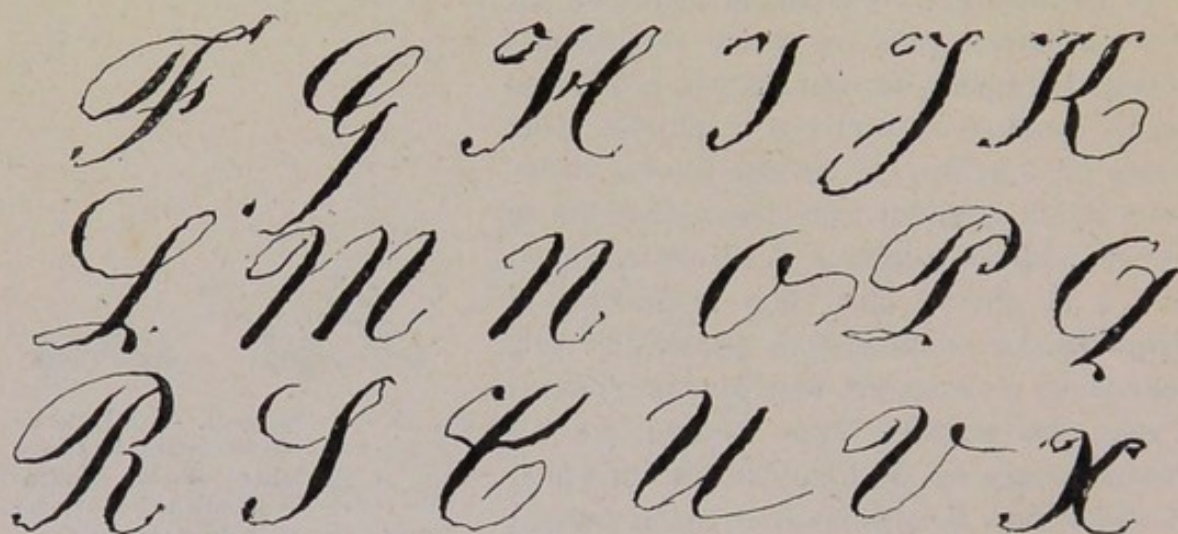 F G H I J K
L M N O P Q
R S T U V X